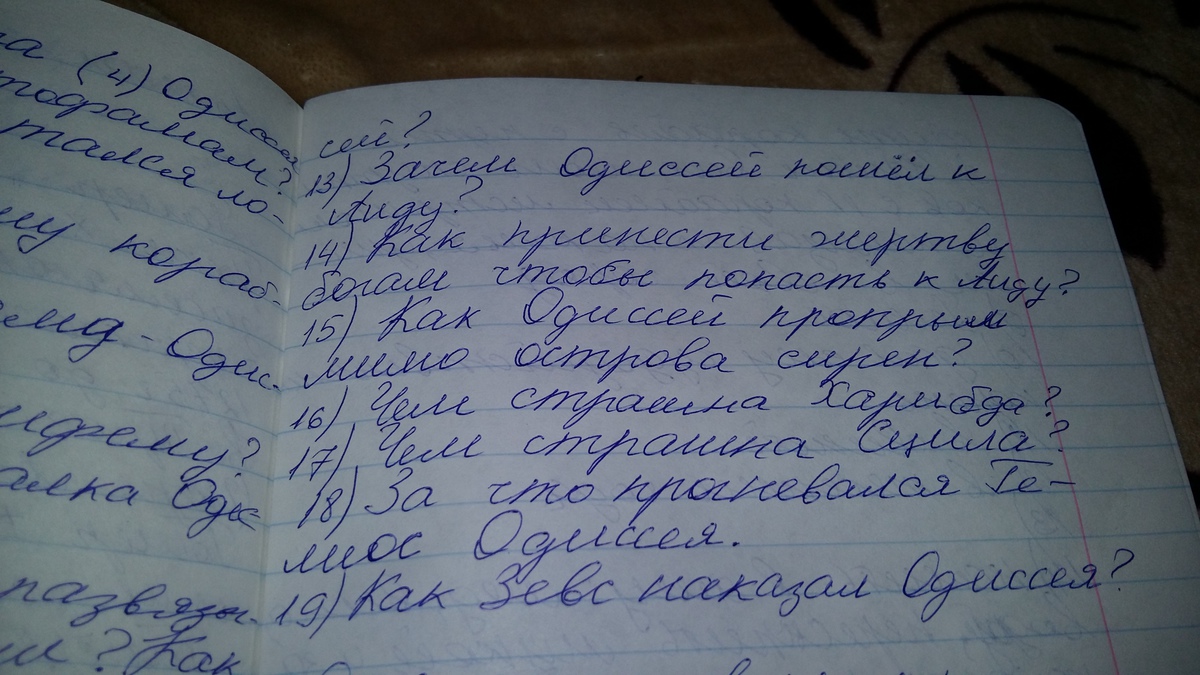 на (4) Одиссея
тофагам?
тался ло-
му кораб-
Одис-
ифему?
алка Одис
развязы-
? Как
сей?
13) Зачем Одиссей пошёл к
Аиду?
14) Как принести жертву
богам чтобы попасть к Аиду?
15) Как Одиссей пропрыл
мимо острова сирен?
16) Чем страшна Харибда?
17) Чем страшна Сцила?
18) За что прогневался Ге-
лиос Одиссея.
19) Как Зевс наказал Одиссея?